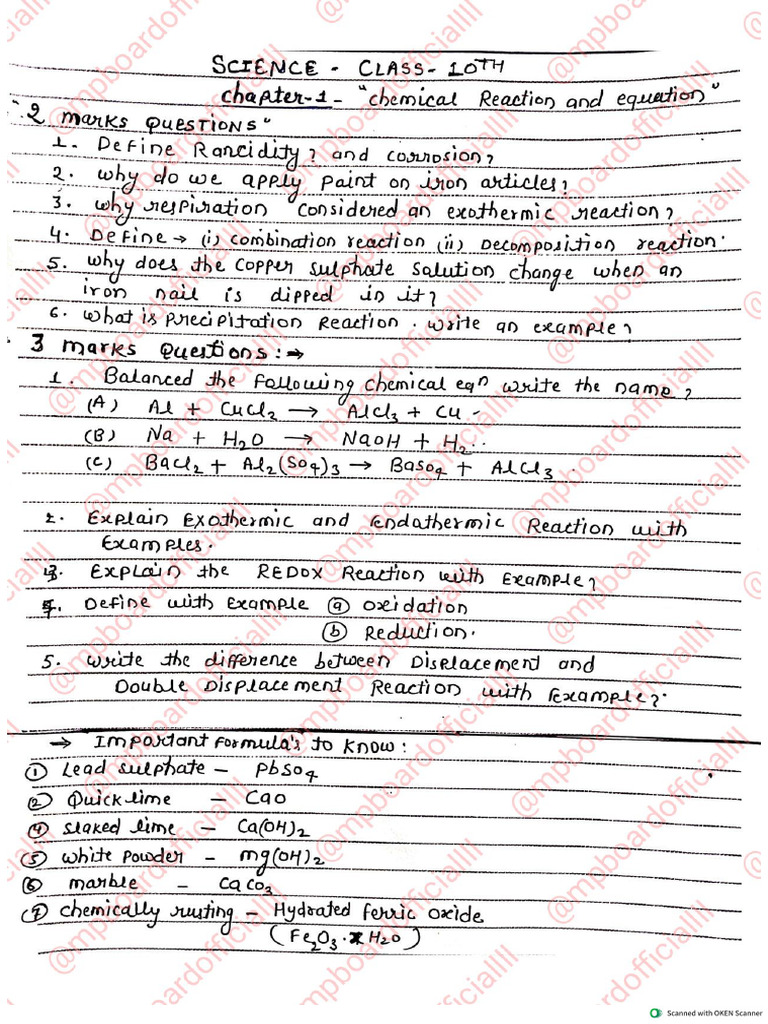 SCIENCE - CLASS-10TH
chapter-1 - "chemical Reaction and equation"
2 marks QUESTIONS"
1. Define Rancidity? and corrosion?
2. why do we apply paint on iron articles?
3. why respiration considered an exothermic reaction?
4. Define → (i) combination reaction (ii) Decomposition reaction.
5. why does the copper sulphate solution change when an
iron nail is dipped in it?
6. what is Precipitation Reaction. write an example?
3 marks Questions:→
1. Balanced the following chemical eqⁿ write the name?
(A) Al + CuCl₂ → AlCl₃ + Cu -
(B) Na + H₂O → NaOH + H₂.
(C) BaCl₂ + Al₂(SO₄)₃ → BaSO₄ + AlCl₃.
2. Explain Exothermic and Endathermic Reaction with
Examples.
3. Explain the REDOX Reaction with Example?
4. Define with Example ⓐ oxidation
ⓑ Reduction.
5. write the difference between Displacement and
Double Displacement Reaction with Example?
→ Important formula's to know:
① Lead sulphate - PbSO₄
② Quick lime - CaO
④ slaked lime - Ca(OH)₂
⑤ white powder - mg(OH)₂
⑥ marble - CaCO₃
⑦ chemically rusting - Hydrated ferric oxide
(Fe₂O₃.xH₂O)
@mpboardofficiallll
Scanned with OKEN Scanner